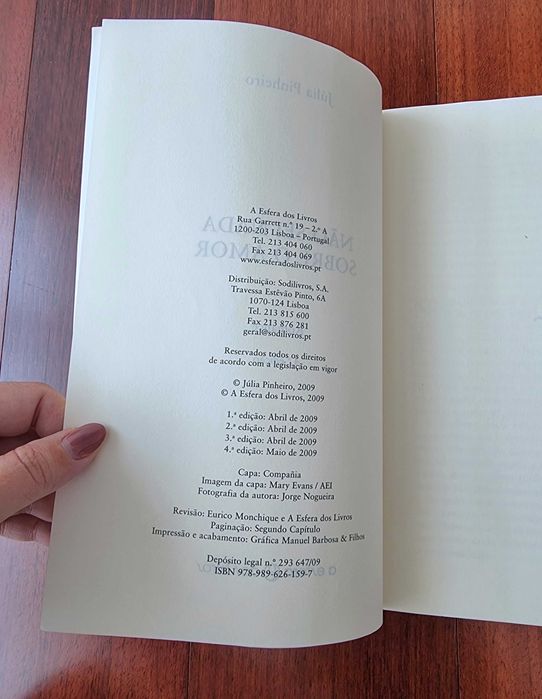 A Esfera dos Livros
Rua Garrett n.° 19 – 2.° A
1200-203 Lisboa – Portugal
Tel. 213 404 060
Fax 213 404 069
www.esferadoslivros.pt
Distribuição: Sodilivros, S.A.
Travessa Estêvão Pinto, 6A
1070-124 Lisboa
Tel. 213 815 600
Fax 213 876 281
geral@sodilivros.pt
Reservados todos os direitos
de acordo com a legislação em vigor
© Júlia Pinheiro, 2009
© A Esfera dos Livros, 2009
1.ª edição: Abril de 2009
2.ª edição: Abril de 2009
3.ª edição: Abril de 2009
4.ª edição: Maio de 2009
Capa: Compañia
Imagem da capa: Mary Evans / AEI
Fotografia da autora: Jorge Nogueira
Revisão: Eurico Monchique e A Esfera dos Livros
Paginação: Segundo Capítulo
Impressão e acabamento: Gráfica Manuel Barbosa & Filhos
Depósito legal n.° 293 647/09
ISBN 978-989-626-159-7